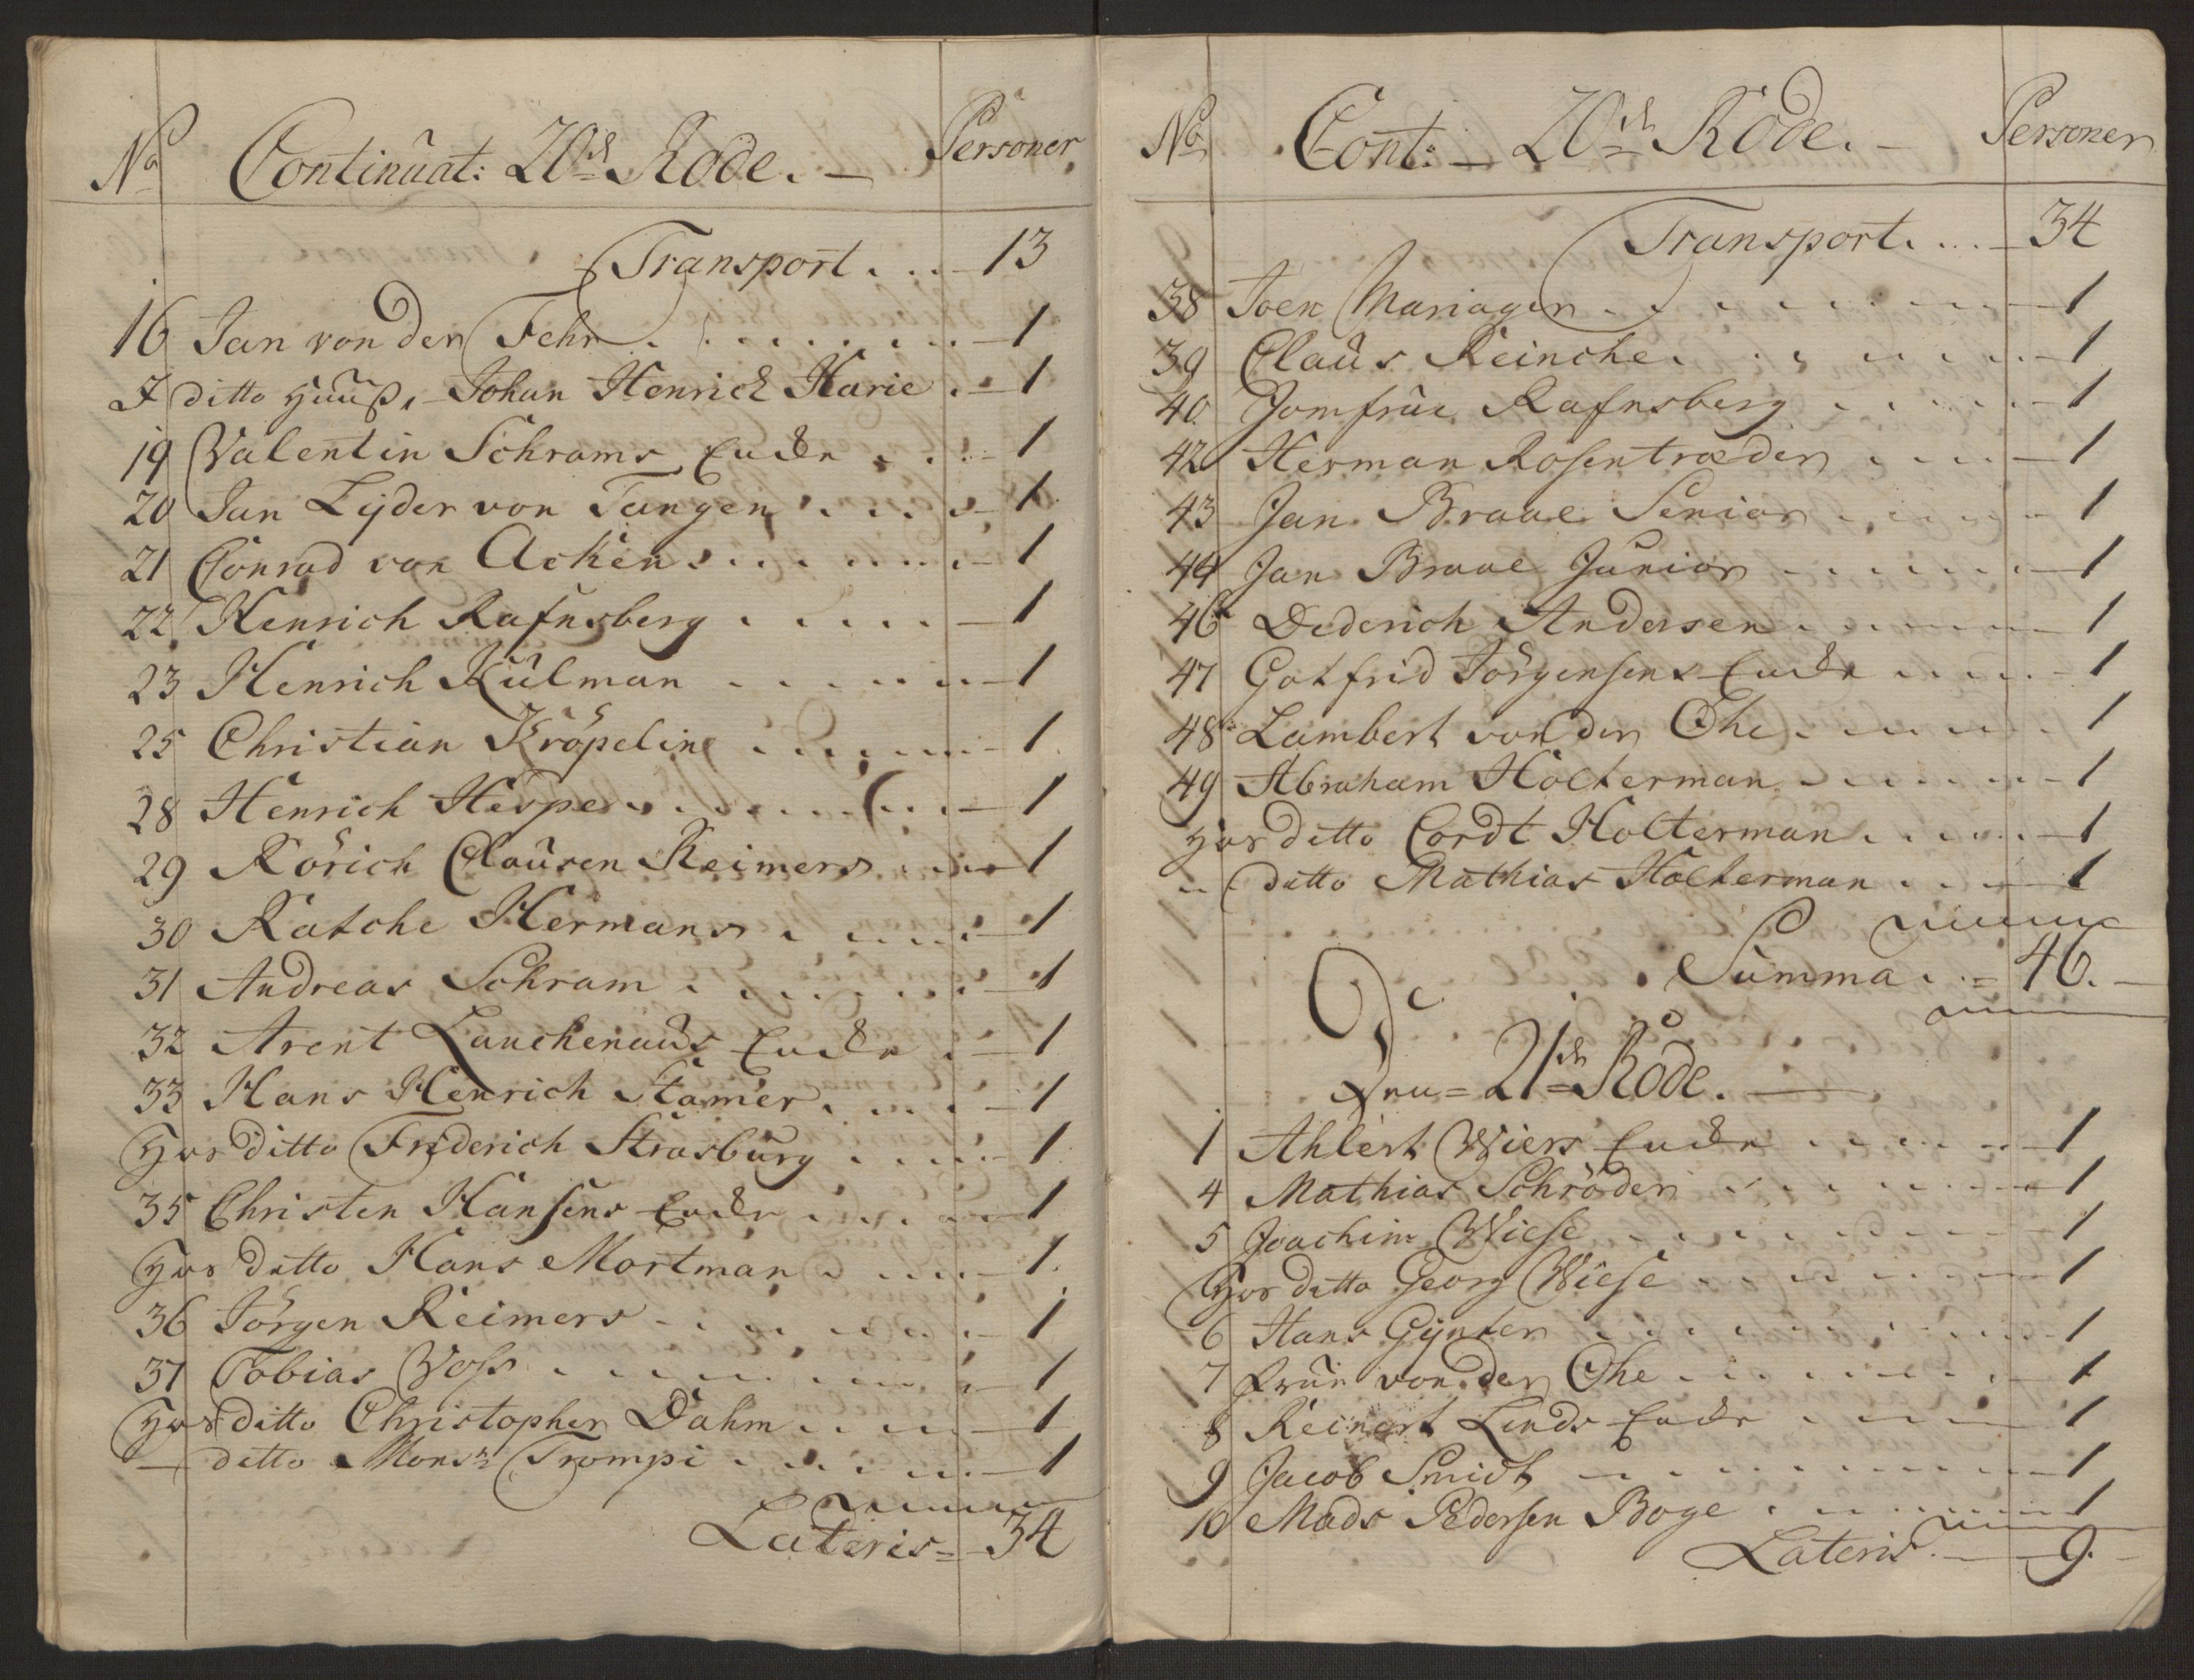 No Continuat: 20de Rode. — Personer
Transport . . . — 13
16 Jan von der Fehr . . . — 1
I ditto Huuß, Johan Henrich Harie . — 1
19 Valentin Schrams Encke . . . — 1
20 Jan Lyder von Tangen . . . — 1
21 Conrad von Acken . . . — 1
22 Henrich Rafnsberg . . . — 1
23 Henrich Kulman . . . — 1
25 Christian Kröpelin . . . — 1
28 Henrich Hespe . . . — 1
29 Rörich Clausen Reimers . . . — 1
30 Katche Hermans . . . — 1
31 Andreas Schram . . . — 1
32 Arent Lauckenaus Encke . — 1
33 Hans Henrich Stamer . . . — 1
Hos ditto Friderich Strasburg . . . — 1
35 Christen Hansens Encke . . . — 1
Hos ditto Hans Mortman . . . — 1
36 Jörgen Reimers . . . — 1
37 Tobias Voss . . . — 1
Hos ditto Christopher Dahm . . . — 1
— ditto Monsr Trompi . . . — 1
Lateris = 34
No Cont: — 20de Rode. — Personer
Transport . . . — 34
38 Joen Mariager . . . — 1
39 Claus Reinche . . . — 1
40 Jomfrue Rafnsberg . . . — 1
42 Herman Rosentræder . . . — 1
43 Jan Braae Senior . . . — 1
44 Jan Braae Junior . . . — 1
46 Dederich Andersen . . . — 1
47 Gotfrid Jörgensens Encke . . . — 1
48 Lambert von der Ohe . . . — 1
49 Abraham Holterman . . . — 1
Hos ditto Cordt Holterman . . . — 1
" ditto Mathias Holterman . . . — 1
Summa . . = 46. —
Den = 21de Rode. —
1 Ahlert Wiers Encke . . . — 1
4 Mathias Schröder . . . — 1
5 Joachim Wiese . . . — 1
Hos ditto Georg Wiese . . . — 1
6 Hans Gynter . . . — 1
7 Frue von der Ohe . . . — 1
8 Reinert Linds Encke . . . — 1
9 Jacob Smidt . . . — 1
10 Mads Pedersen Boge . . . — 1
Lateris — 9. —